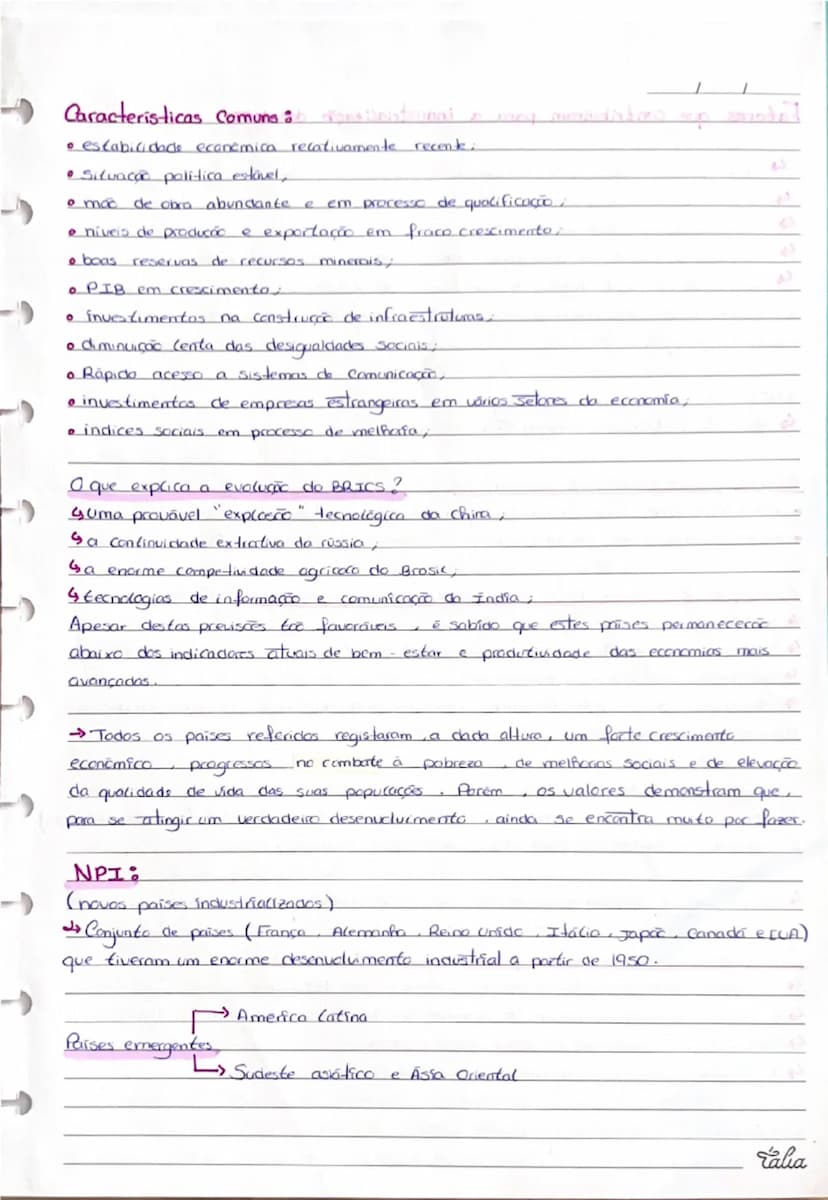 Características Comuns:
• estabilidade económica relativamente recente;
• Situação política estável,
• mão de obra abundante e em processo de qualificação;
• níveis de produção e exportação em fraco crescimento;
• boas reservas de recursos minerais;
• PIB em crescimento;
• investimentos na construção de infraestruturas;
• diminuição lenta das desigualdades sociais;
• Rápido acesso a sistemas de comunicação;
• investimentos de empresas estrangeiras em vários setores da economia;
• índices sociais em processo de melhoria;
O que explica a evolução do BRICS?
↳ Uma provável "explosão" tecnológica da China;
↳ a continuidade extrativa da rússia;
↳ a enorme competividade agrícola do Brasil;
↳ tecnologias de informação e comunicação da Índia;
Apesar destas previsões tão favoráveis, é sabido que estes países permanecerão
abaixo dos indicadores atuais de bem-estar e produtividade das economias mais
avançadas.
→ Todos os países referidos registaram, a dada altura, um forte crescimento
económico, progressos no combate à pobreza, de melhorias sociais e de elevação
da qualidade de vida das suas populações. Porém, os valores demonstram que,
para se atingir um verdadeiro desenvolvimento, ainda se encontra muito por fazer.
NPI:
(novos países industrializados)
↳ Conjunto de países (França, Alemanha, Reino Unido, Itália, Japão, Canadá e EUA)
que tiveram um enorme desenvolvimento industrial a partir de 1950.
→ America latina
Países emergentes
→ Sudeste asiático e Ásia Oriental
tália